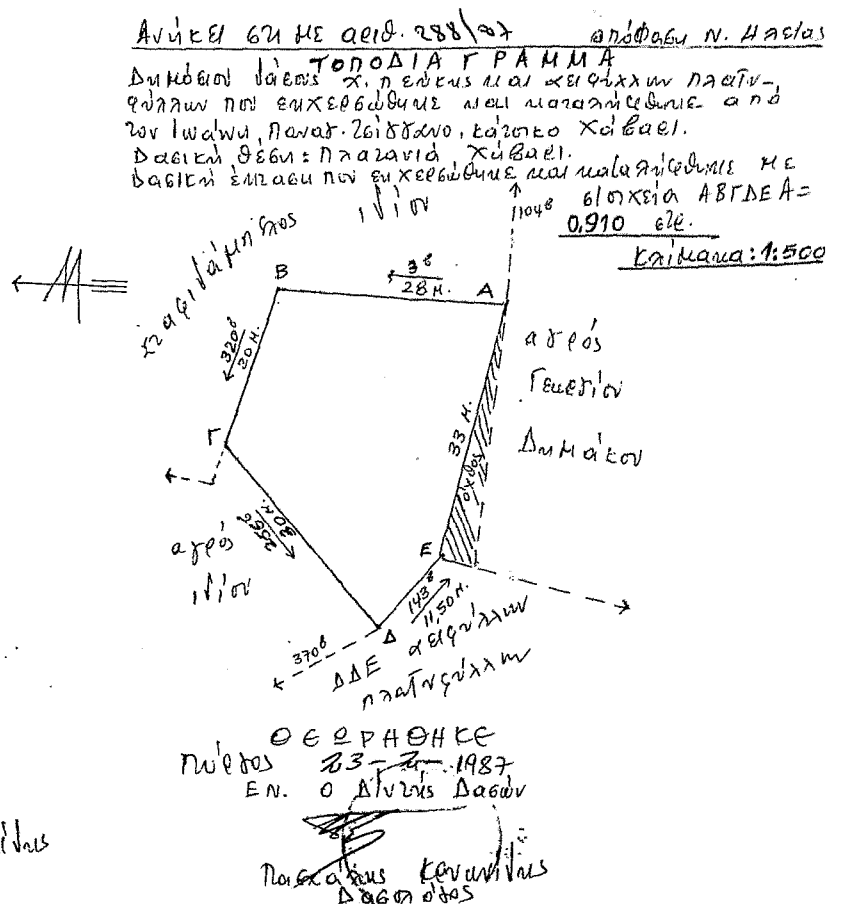 Ανήκει στη με αριθ. 288/87 απόφαση Ν. Ηλείας
ΤΟΠΟΔΙΑΓΡΑΜΜΑ
Δημόσιου δάσους χ. πεύκης και αειφύλλων πλατυ-
φύλλων που εκχερσώθηκε και καταλήφθηκε από
τον Ιωάννη Παναγ. Τσίγγανο, κάτοικο Χάβαρι.
Δασική θέση: Πλατανιά Χάβαρι.
Δασική έκταση που εκχερσώθηκε και καταλήφθηκε με
στοιχεία ΑΒΓΔΕΑ=
0,910 στρ.
Κλίμακα: 1:500
σταφιδάμπελος
ιδίου
110
Β
3
28 μ.
Α
320
30 μ.
αγρός
Γεωργίου
Δημάκου
33 μ.
όχθος
Γ
256
30 μ.
αγρός
ιδίου
Ε
143
11,50 μ.
Δ
370
ΔΔΕ αειφύλλων
πλατυφύλλων
ΘΕΩΡΗΘΗΚΕ
Πύργος 23-2-1987
ΕΝ. Ο Δ/ντής Δασών
Πασχάλης
Δασολόγος